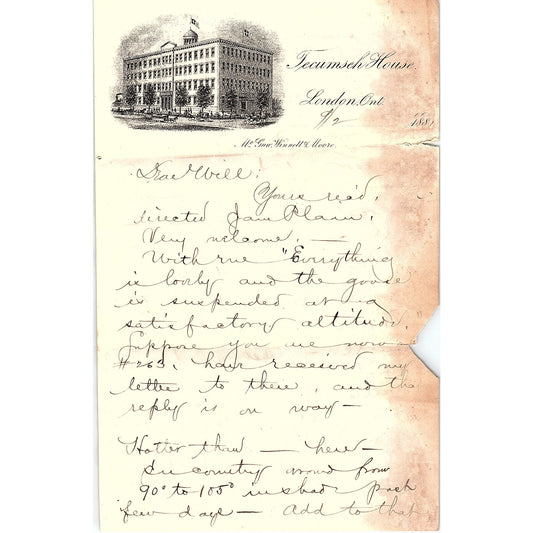 Tecumseh House.
London, Ont.
9/2 1881
Mc Gaw, Winnett & Moore.
Dear Will:
Yours rec'd,
directed Jam Plain.
Very welcome. —
With me "Everything
is lovely and the goose
is suspended at a
satisfactory altitude."
Suppose you are now
#263, have received my
letter to there, and the
reply is on way —
Hotter than — here —
In country around from
90° to 105° in shade past
few days — Add to that